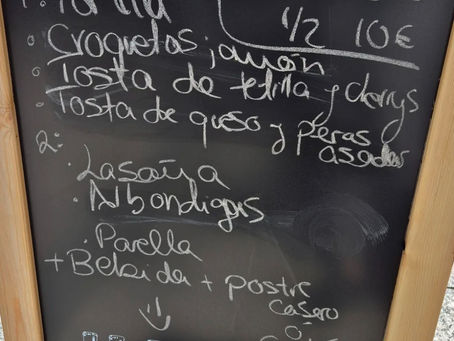 1. Tortilla
1/2 10€
Croquetas jamón
Tosta de tetilla y cherrys
Tosta de queso y peras
asadas
2:
Lasaña
Albondigas
Paella
+ Bebida + postre
casero
o